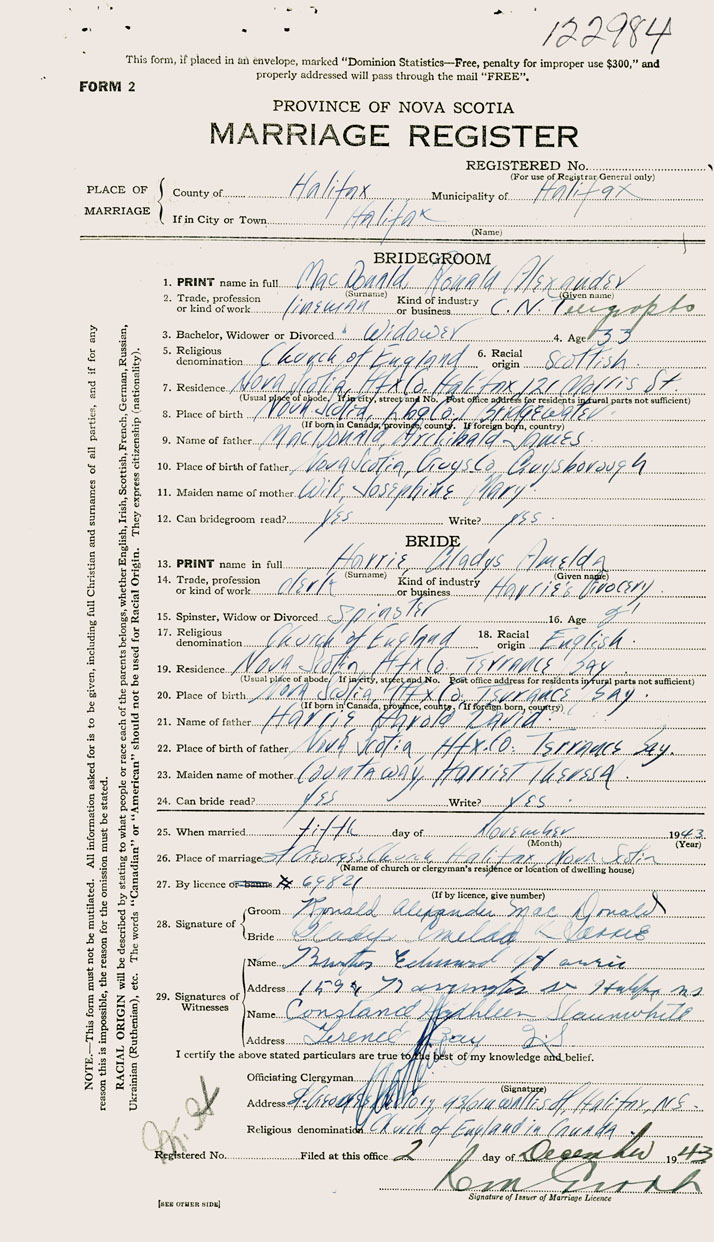 122984
This form, if placed in an envelope, marked "Dominion Statistics—Free, penalty for improper use $300," and
properly addressed will pass through the mail "FREE".
FORM 2
PROVINCE OF NOVA SCOTIA
MARRIAGE REGISTER
REGISTERED No.
(For use of Registrar General only)
PLACE OF MARRIAGE
County of Halifax, Municipality of Halifax
If in City or Town Halifax
(Name)
BRIDEGROOM
1. PRINT name in full MacDonald Ronald Alexander
(Surname) (Given name)
2. Trade, profession or kind of work lineman Kind of industry or business C.N. Telegraphs
3. Bachelor, Widower or Divorced Widower 4. Age 33
5. Religious denomination Church of England 6. Racial origin Scottish
7. Residence Nova Scotia, Hfx Co. Halifax, 121 Morris St.
(Usual place of abode. If in city, street and No. Post office address for residents in rural parts not sufficient)
8. Place of birth Nova Scotia, Bridgewater
(If born in Canada, province, county. If foreign born, country)
9. Name of father MacDonald, Archibald James
10. Place of birth of father Nova Scotia, Guys Co, Guysborough
11. Maiden name of mother Josephine Mary
12. Can bridegroom read? yes Write? yes
BRIDE
13. PRINT name in full Harrie, Gladys Amelda
(Surname) (Given name)
14. Trade, profession or kind of work clerk Kind of industry or business Harrie's Grocery
15. Spinster, Widow or Divorced Spinster 16. Age
17. Religious denomination Church of England 18. Racial origin English
19. Residence Nova Scotia, Hfx Co. Terrance Bay
(Usual place of abode. If in city, street and No. Post office address for residents in rural parts not sufficient)
20. Place of birth Nova Scotia, Hfx Co. Terrance Bay.
(If born in Canada, province, county. If foreign born, country)
21. Name of father Harrie Harold David
22. Place of birth of father Nova Scotia Hfx. Co. Terrance Bay.
23. Maiden name of mother Countaway, Harriet Theresa
24. Can bride read? yes Write? yes
25. When married fifth day of November 1943
(Month) (Year)
26. Place of marriage St Georges Church Halifax, Nova Scotia
(Name of church or clergyman's residence or location of dwelling house)
27. By licence or banns # 69821
(If by licence, give number)
28. Signature of
Groom Ronald Alexander MacDonald
Bride Gladys Emelda
29. Signatures of Witnesses
Name Edward Harrie
Address Halifax ns
Name Constance Kathleen Slaunwhite
Address Terence Bay N.S.
I certify the above stated particulars are true to the best of my knowledge and belief.
Officiating Clergyman
(Signature)
Address St. Georges Rectory, Cornwallis St, Halifax, N.S.
Religious denomination Church of England in Canada
Registered No. Filed at this office 2 day of December 1943
Signature of Issuer of Marriage Licence
[SEE OTHER SIDE]
NOTE.—This form must not be mutilated. All information asked for is to be given, including full Christian and surnames of all parties, and if for any
reason this is impossible, the reason for the omission must be stated.
RACIAL ORIGIN will be described by stating to what people or race each of the parents belongs, whether English, Irish, Scottish, French, German, Russian,
Ukrainian (Ruthenian), etc. The words "Canadian" or "American" should not be used for Racial Origin. They express citizenship (nationality).